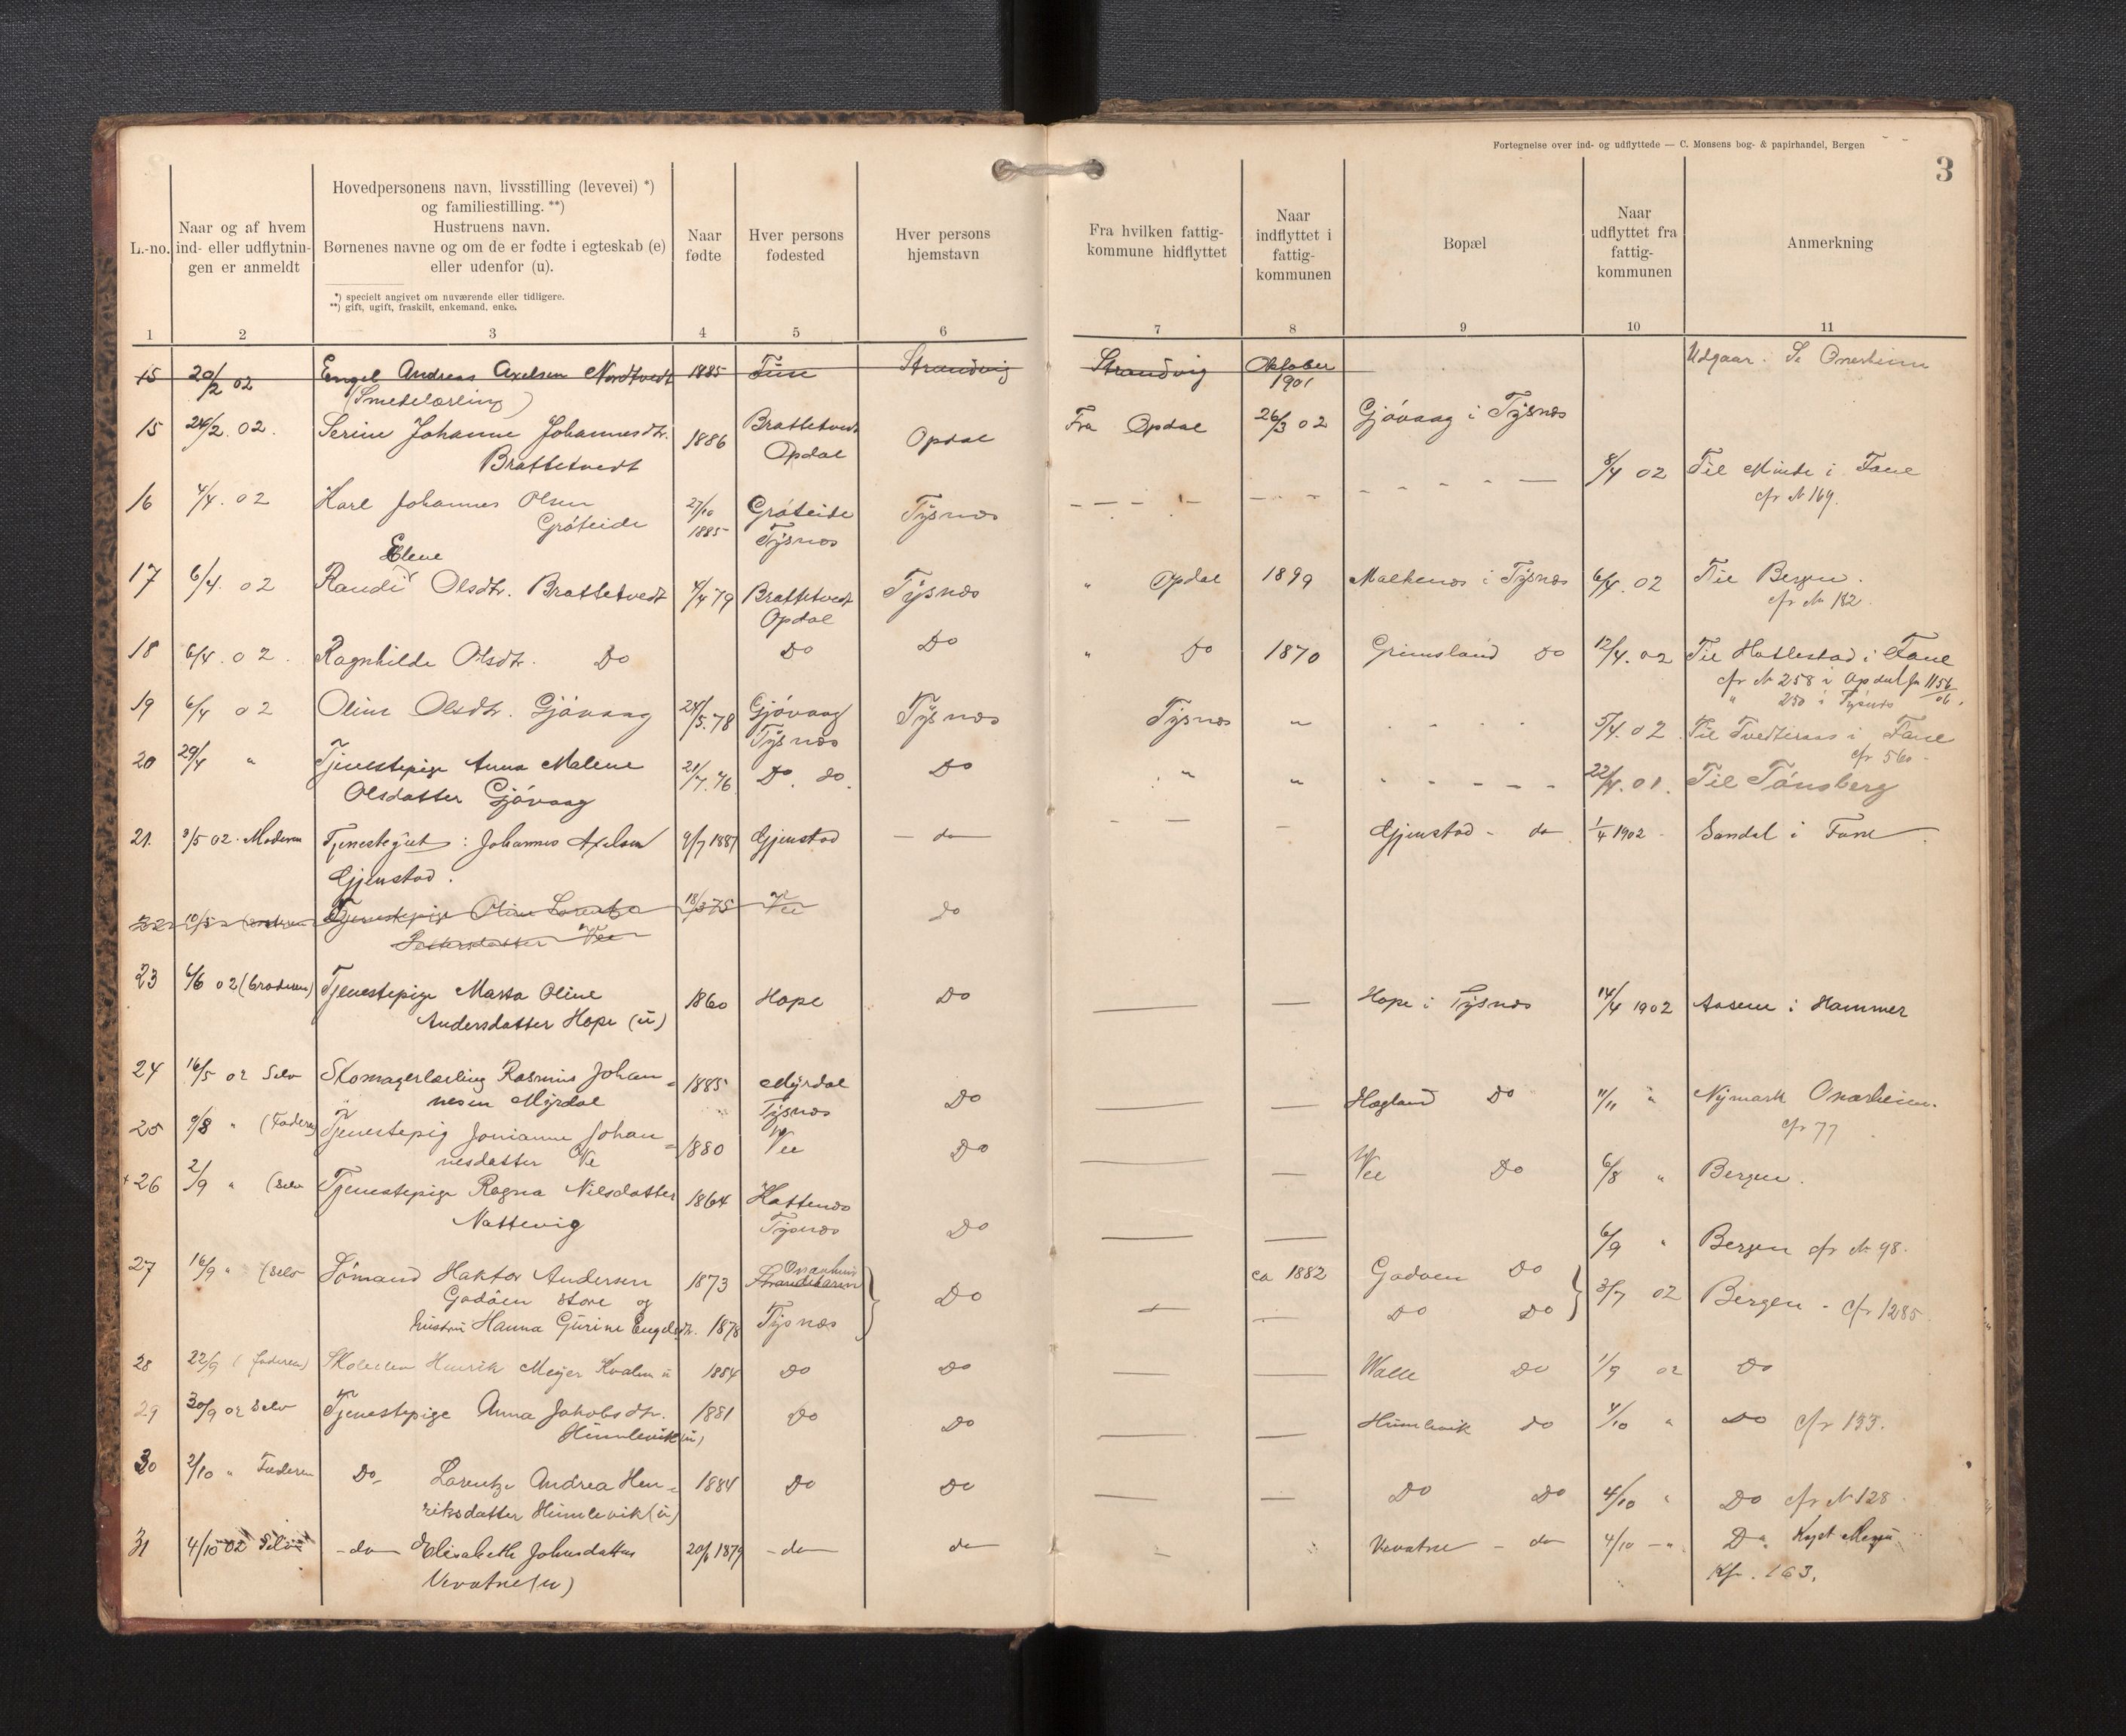 Fortegnelse over ind- og udflyttede — C. Monsens bog- & papirhandel, Bergen
3
L.-no.
Naar og af hvem
ind- eller udflytnin-
gen er anmeldt
Hovedpersonens navn, livsstilling (levevei) *)
og familiestilling. **)
Hustruens navn.
Børnenes navne og om de er fødte i egteskab (e)
eller udenfor (u).
*) specielt angivet om nuværende eller tidligere.
**) gift, ugift, fraskilt, enkemand, enke.
Naar
fødte
Hver persons
fødested
Hver persons
hjemstavn
Fra hvilken fattig-
kommune hidflyttet
Naar
indflyttet i
fattig-
kommunen
Bopæl
Naar
udflyttet fra
fattig-
kommunen
Anmerkning
1 2 3 4 5 6 7 8 9 10 11
15 20/2 02 Engel Andreas Axelsen Nordtvedt 1885 Strandvig Strandvig Oktober Udgaar. Se Onerheim
(Smedelærling) 1901
15 24/2. 02. Serine Johanne Johannesdtr. 1886 Brattetvedt Opdal Fra Opdal 26/3 02 Gjövaag i Tysnæs
Brattetvedt Opdal
16 4/4. 02 Karl Johannes Olsen 27/10 Gröteide Tysnæs 8/4 02 Til Minde i Fane
Gröteide 1885 Tysnæs cfr № 169.
Elene
17 6/4. 02 Randi Olsdtr. Brattetvedt 4/4 79 Brattetvedt Tysnæs " Opdal 1899 Malkenes i Tysnæs 6/4. 02 Til Bergen.
Opdal cfr № 182.
18 6/4. 02. Ragnhilde Olsdtr. Do Do Do " Do 1870 Grimsland Do 12/4. 02 Til Hatlestad i Fane
cfr № 258 i Opdal
" 250 i Tysnæs
19 6/4 02 Oline Olsdtr. Gjövaag 24/5. 78 Gjövaag Tysnæs Tysnæs " 5/4. 02 Til i Fane
Tysnæs cfr 560
20 29/4 " Tjenestepige Anna Malene 21/7. 76 Do. do. Do " " 22/4. 01. Til Tönsberg
Olsdatter Gjövaag
21. 3/5 02. Moderen Tjenestegut: Johannes Axelsen 9/7 1887 Gjenstad — do — Gjenstad - do 1/4 1902 Sandal i Fane
Gjenstad.
22 10/5 Tjenestepige Oline Lorentze 18/3 75 Vee do
Vee
23 6/6 02 (broderen) Tjenestepige Marta Oline 1860 Hope Do Hope i Tysnæs 14/4 1902 Aasene i Hammer
Andersdatter Hope (u)
24 16/5 02 Selv Skomagerlærling Rasmus Johan= 1885 Myrdal Do Hagland Do 11/11 " Nymark Onarheim.
nesen Myrdal Tysnæs cfr 77
25 9/8 " (Faderen Tjenestepig Jonianne Johan= 1880 Vee Do Vee Do 6/8 " Bergen.
nesdatter Ve
26 2/9 " (Selv Tjenestepige Ragna Nilsdatter 1864 Hattenes Do 6/9 " Bergen cfr № 98.
Nattevig Tysnæs
27 16/9 " (Selv Sömand Haktor Andersen 1873 Onarheim Do ca 1882 Godøen Do 3/7 02 Bergen - cfr 1285
Godöen store og Strandebarm
hustru Hanna Gurine Engelsdtr. 1878 Tysnæs Do Do
28 22/9 (faderen) Henrik Meyer Kvalen u 1884 Do Do Walle Do 1/9 02 Do
29 30/9 02 Selv Tjenestepige Anna Jakobsdtr. 1881 Do Do Humlevik do 4/10 " Do cfr 133.
Humlevik (u)
30 2/10 " Faderen Do Lorentze Andrea Hen= 1884 Do Do Do Do 4/10 " Do cfr № 128
riksdatter Humlevik (u)
31 4/10 02 Selv - do - Elisabeth Johnsdatter 20/6 1879 - do - do Vevatne - do 4/10 - " Do
Vevatne (u) Kfr. 163.